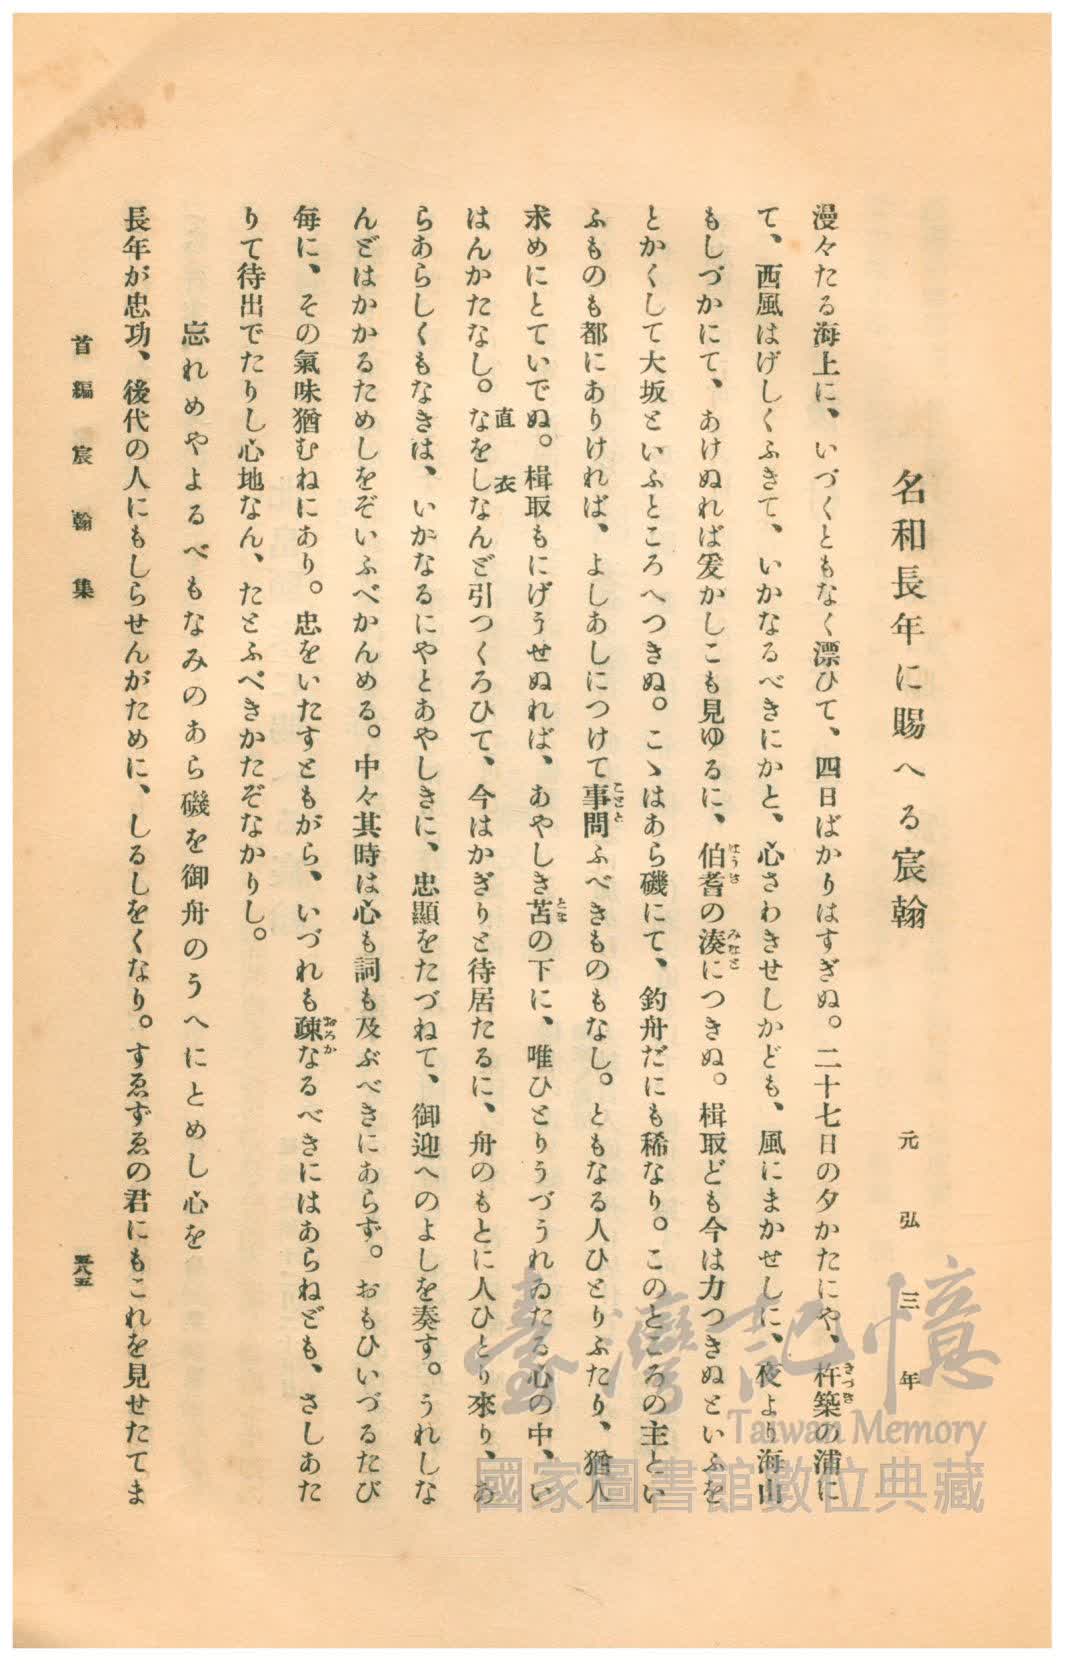 名和長年に賜へる宸翰
元弘三年
漫々たる海上に、いづくともなく漂ひて、四日ばかりはすぎぬ。二十七日の夕かたにや、杵築の浦に
きづき
て、西風はげしくふきて、いかなるべきにかと、心さわきせしかども、風にまかせしに、夜より海山
もしづかにて、あけぬれば爰かしこも見ゆるに、伯耆の湊につきぬ。楫取ども今は力つきぬといふを
はうき
みなと
とかくして大坂といふところへつきぬ。こゝはあら磯にて、釣舟だにも稀なり。このところの主とい
ふものも都にありければ、よしあしにつけて事問ふべきものもなし。ともなる人ひとりふたり、猶人
ことと
求めにとていでぬ。楫取もにげうせぬれば、あやしき苫の下に、唯ひとりうづうれゐたる心の中、い
とな
はんかたなし。なをしなんど引つくろひて、今はかぎりと待居たるに、舟のもとに人ひとり來り、あ
直衣
らあらしくもなきは、いかなるにやとあやしきに、忠顯をたづねて、御迎へのよしを奏す。うれしな
んどはかかるためしをぞいふべかんめる。中々其時は心も詞も及ぶべきにあらず。おもひいづるたび
毎に、その氣味猶むねにあり。忠をいたすともがら、いづれも疎なるべきにはあらねども、さしあた
おろか
りて待出でたりし心地なん、たとふべきかたぞなかりし。
忘れめやよるべもなみのあら磯を御舟のうへにとめし心を
長年が忠功、後代の人にもしらせんがために、しるしをくなり。すゑずゑの君にもこれを見せたてま
首編 宸翰集
五八五
臺灣記憶
Taiwan Memory
國家圖書館數位典藏